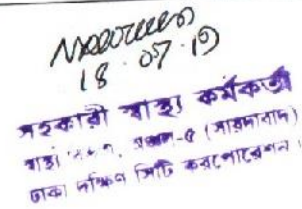 18.07.19
সহকারী স্বাস্থ্য কর্মকর্তা
স্বাস্থ্য অঞ্চল-৫ (সায়দাবাদ)
ঢাকা দক্ষিণ সিটি করপোরেশন।